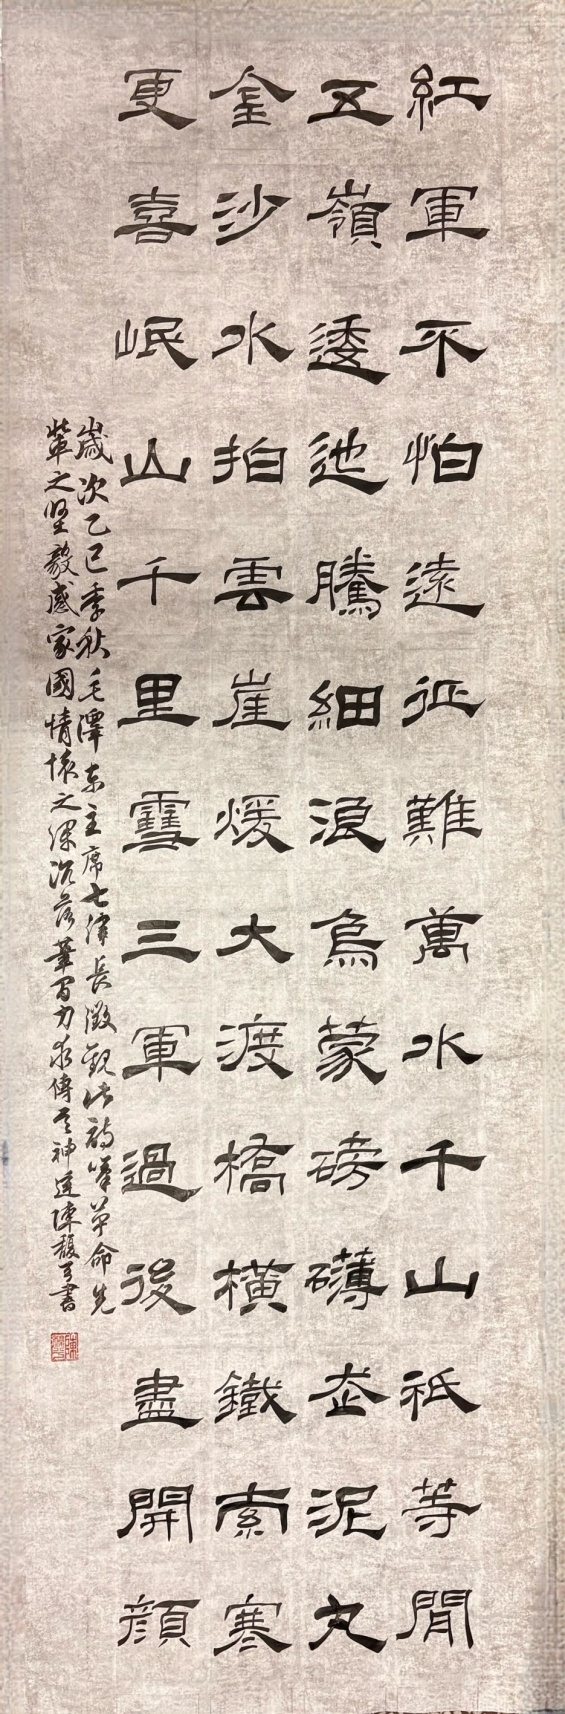 紅軍不怕遠征難萬水千山祇等閒
五嶺逶迤騰細浪烏蒙磅礴走泥丸
金沙水拍雲崖煖大渡橋橫鐵索寒
更喜岷山千里雪三軍過後盡開顏
歲次乙巳季秋毛澤东主席七律長徵觀此詩嘆革命先
輩之坚毅感家國情懷之深沉落筆间力求傳其神達陳馥可書